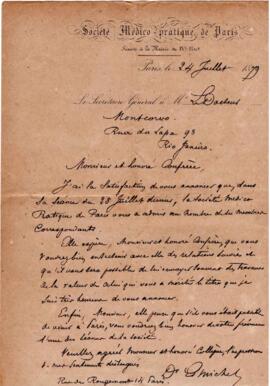 Société Médico-pratique de Paris
Paris, le 24 Juillet 1879
Le Secrétaire Général à Mr Le Docteur
Montcorvo
Rua da Lapa 93
Rio Janeiro.
Monsieur et honoré Confrère,
J'ai la satisfaction de vous annoncer que, dans
sa séance du 28 Juillet dernier, la Société Médico
Pratique de Paris vous a admis au nombre de ses membres
Correspondants.
Elle espère, Monsieur et honoré Confrère, que vous
voudrez bien entretenir avec elle des relations suivies et
qu'il vous sera possible de lui envoyer souvent des travaux
de la valeur de celui qui vous a mérité le titre que je
suis très heureux de vous annoncer.
Enfin, Monsieur, si jamais il vous était possible
de venir à Paris, vous voudrez bien honorer de votre présence
l'une des séances de la Société.
Veuillez agréer Monsieur et honoré Collègue, l'expression
de mes sentiments distingués.
Dr Michel
Rue de Rougemont 14 Paris.